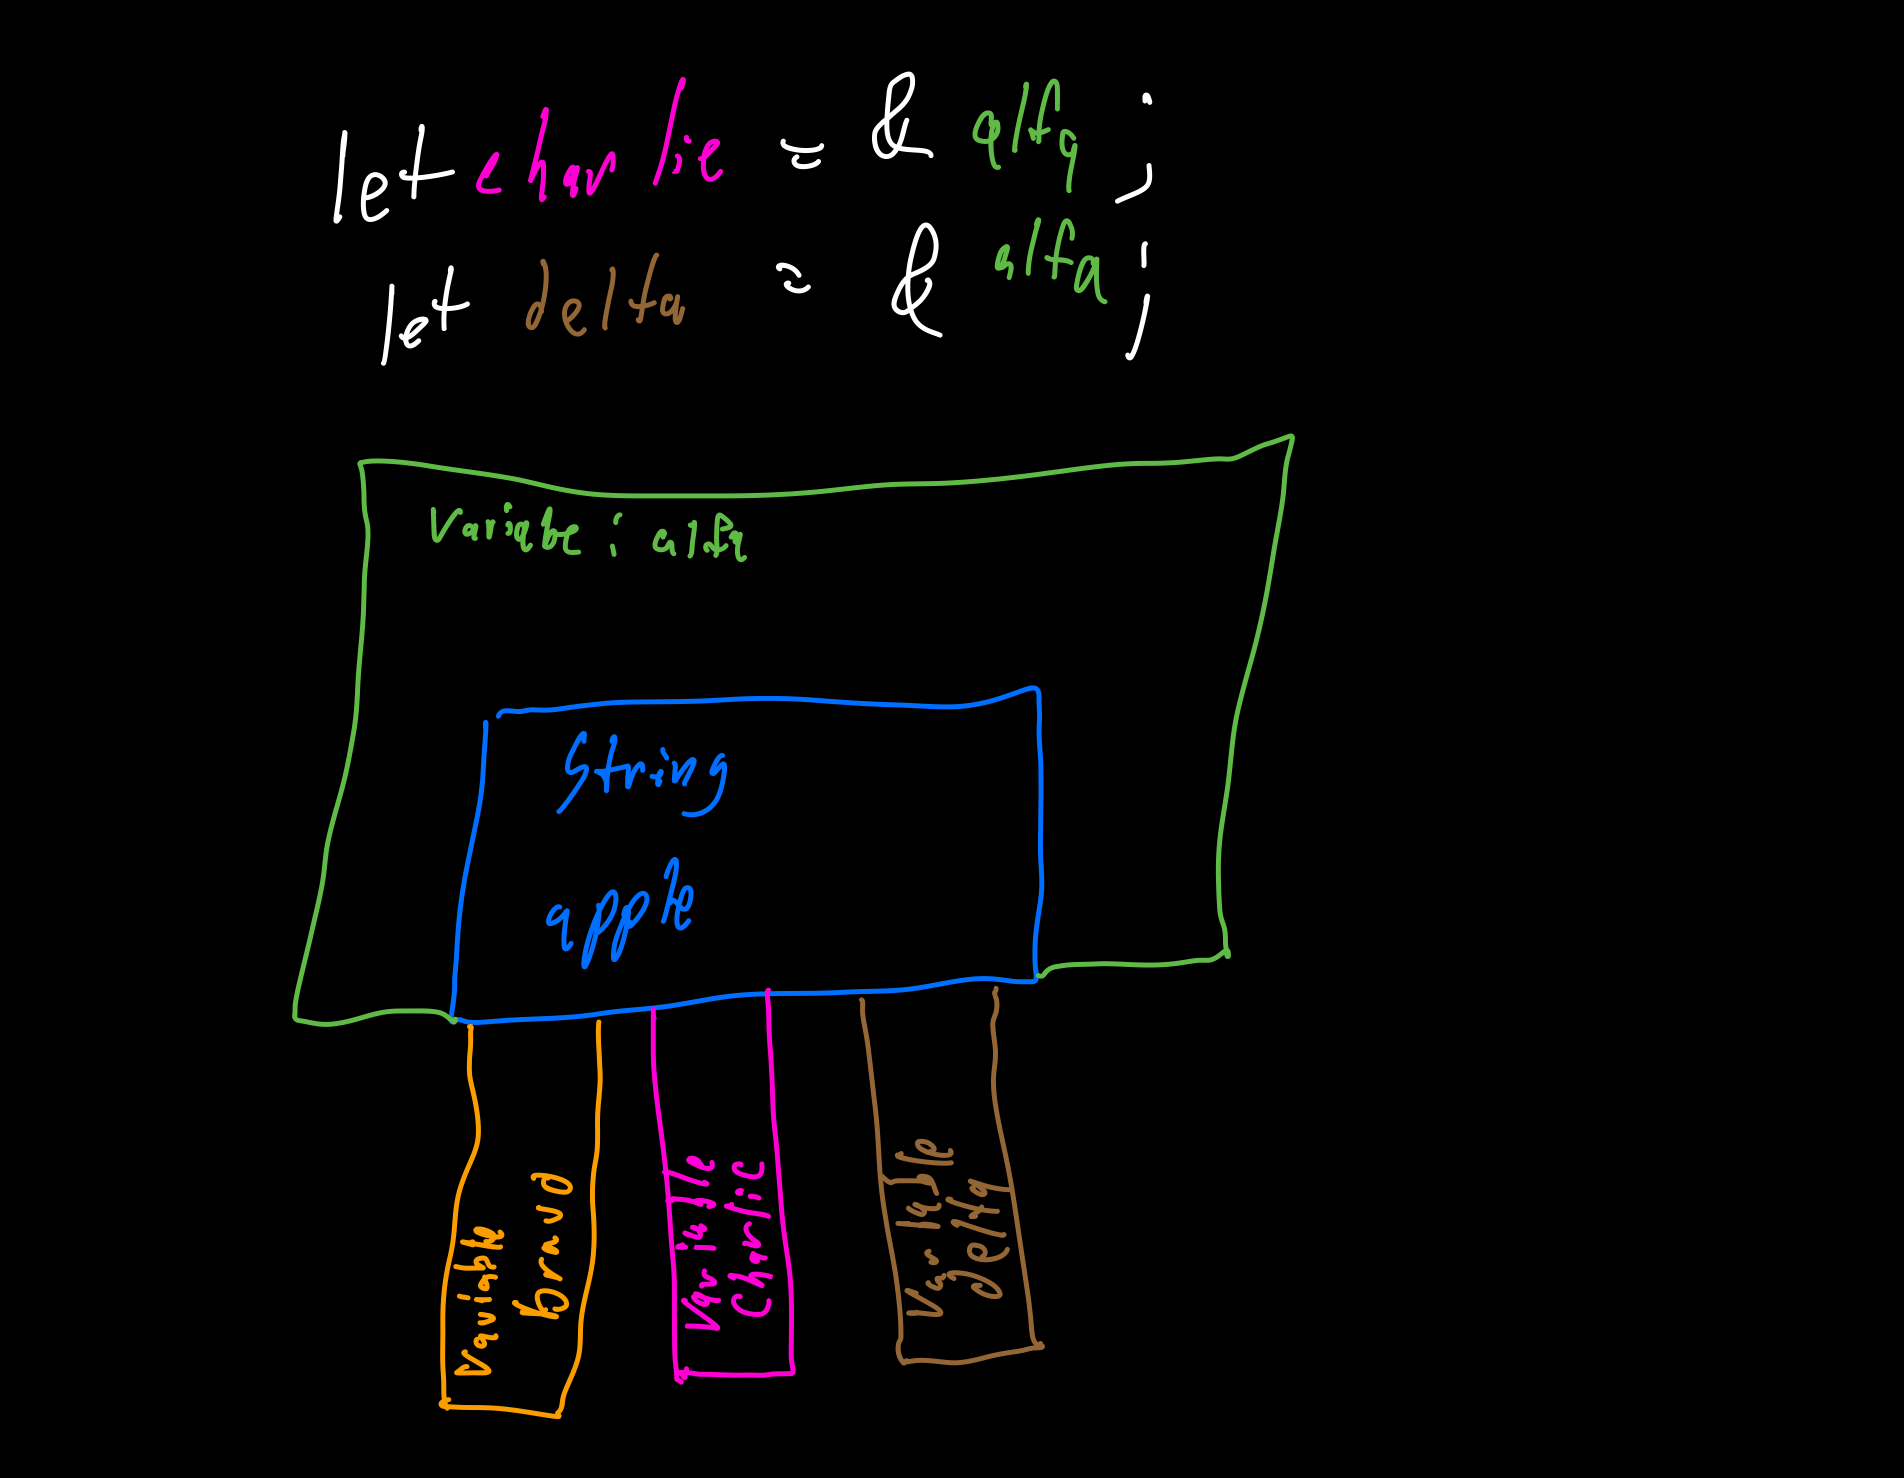 let charlie = & alfa ;
let delta = & alfa ;
Variabe : alfa
String
apple
Variable
bravo
Variable
Charlie
Variable
Delta